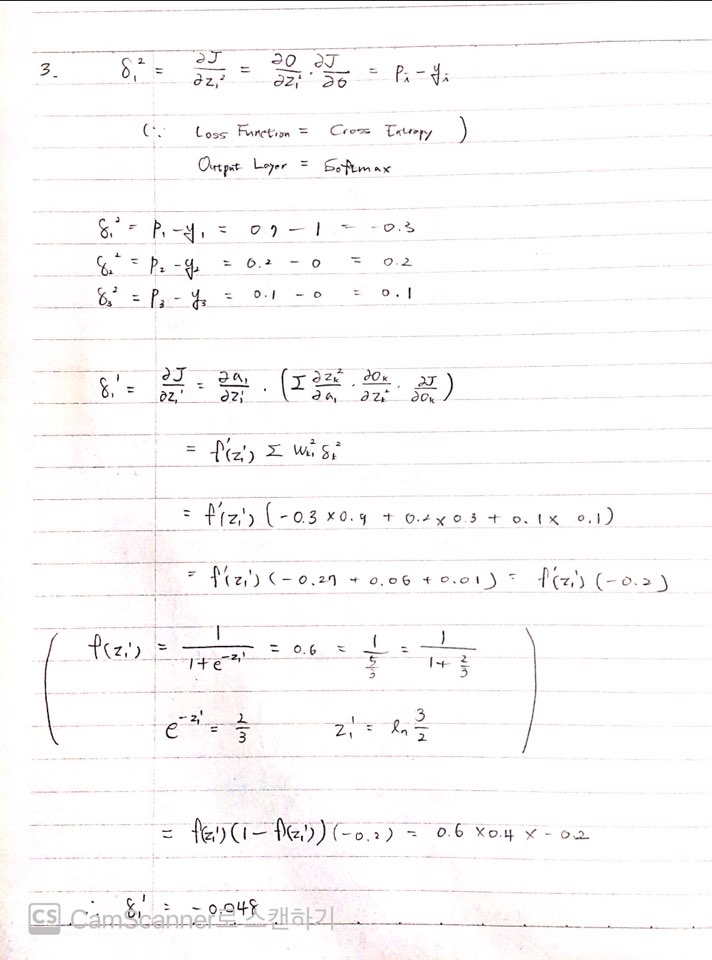 3. δ₁² = ∂J/∂z₁² = ∂O/∂z₁² · ∂J/∂O = pᵢ - yᵢ
(∵ Loss Function = Cross Entropy )
Output Layer = Softmax
δ₁² = P₁ - y₁ = 0.7 - 1 = -0.3
δ₂² = P₂ - y₂ = 0.2 - 0 = 0.2
δ₃² = P₃ - y₃ = 0.1 - 0 = 0.1
δ₁¹ = ∂J/∂z₁¹ = ∂a₁/∂z₁¹ · (Σ ∂zₖ²/∂a₁ · ∂Oₖ/∂zₖ² · ∂J/∂Oₖ)
= f'(z₁¹) Σ Wₖ₁² δₖ²
= f'(z₁¹) (-0.3 × 0.9 + 0.2 × 0.3 + 0.1 × 0.1)
= f'(z₁¹) (-0.27 + 0.06 + 0.01) = f'(z₁¹) (-0.2)
( f(z₁¹) = 1/(1+e^(-z₁¹)) = 0.6 = 1/(5/3) = 1/(1+2/3)
e^(-z₁¹) = 2/3 z₁¹ = ln 3/2 )
= f(z₁¹)(1 - f(z₁¹))(-0.2) = 0.6 × 0.4 × -0.2
∴ δ₁¹ = -0.048
CS CamScanner로 스캔하기